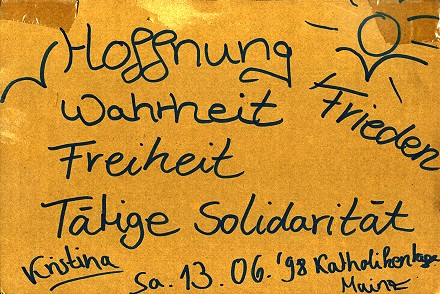 Hoffnung
Wahrheit
Frieden
Freiheit
Tätige Solidarität
Kristina
Sa. 13. 06. '98 Katholikentage
Mainz